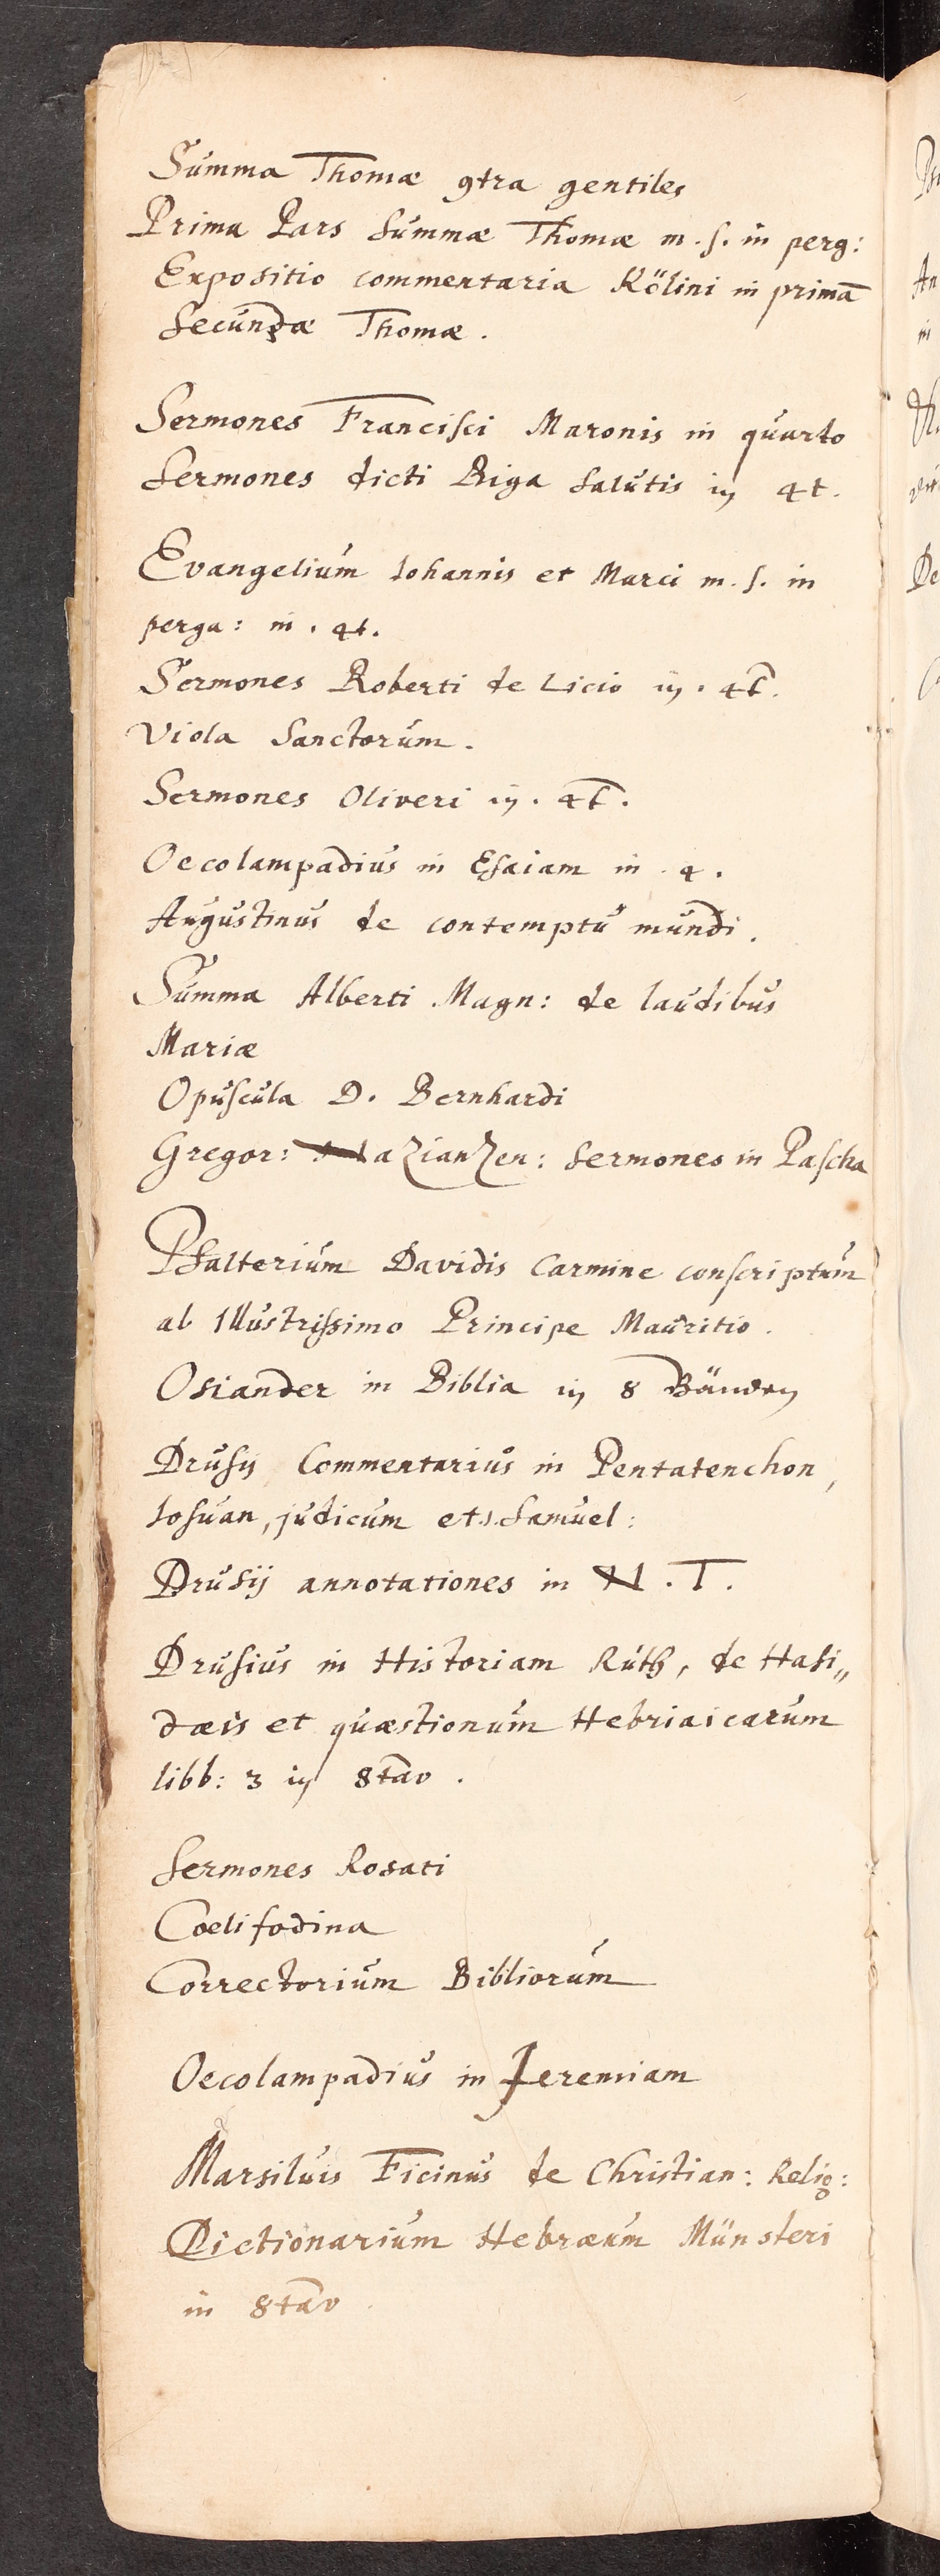 Summa Thomæ 9tra gentiles
Prima Pars Summæ Thomæ m. s. in perg:
Expositio commentaria Kölini in primā
Secundæ Thomæ.
Sermones Francisci Maronis in quarto
Sermones dicti Biga Salutis in 4t.
Evangelium Iohannis et Marci m. s. in
perga: in . 4t.
Sermones Roberti de Licio in . 4t.
Viola Sanctorum.
Sermones Oliveri in . 4t.
Oecolampadius in Esaiam in . 4.
Augustinus de contemptu mundi.
Summa Alberti Magn: de laudibus
Mariæ
Opuscula D. Bernhardi
Gregor: Nazianzen: Sermones in Pascha
Psalterium Davidis Carmine conscriptum
ab Illustrissimo Principe Mauritio.
Osiander in Biblia in 8 Bänden
Drusij Commentarius in Pentatenchon,
Iosuan, judicum et 1. Samuel:
Drusij annotationes in N. T.
Drusius in Historiam Ruth, de Hasi„
dæis et quæstionum Hebriaicarum
libb: 3 in 8tāv.
Sermones Rosati
Coelifodina
Correctorium Bibliorum
Oecolampadius in Jeremiam
Marsiluis Ficinus de Christian: Relig:
Dictionarium Hebræum Münsteri
in 8tāv.